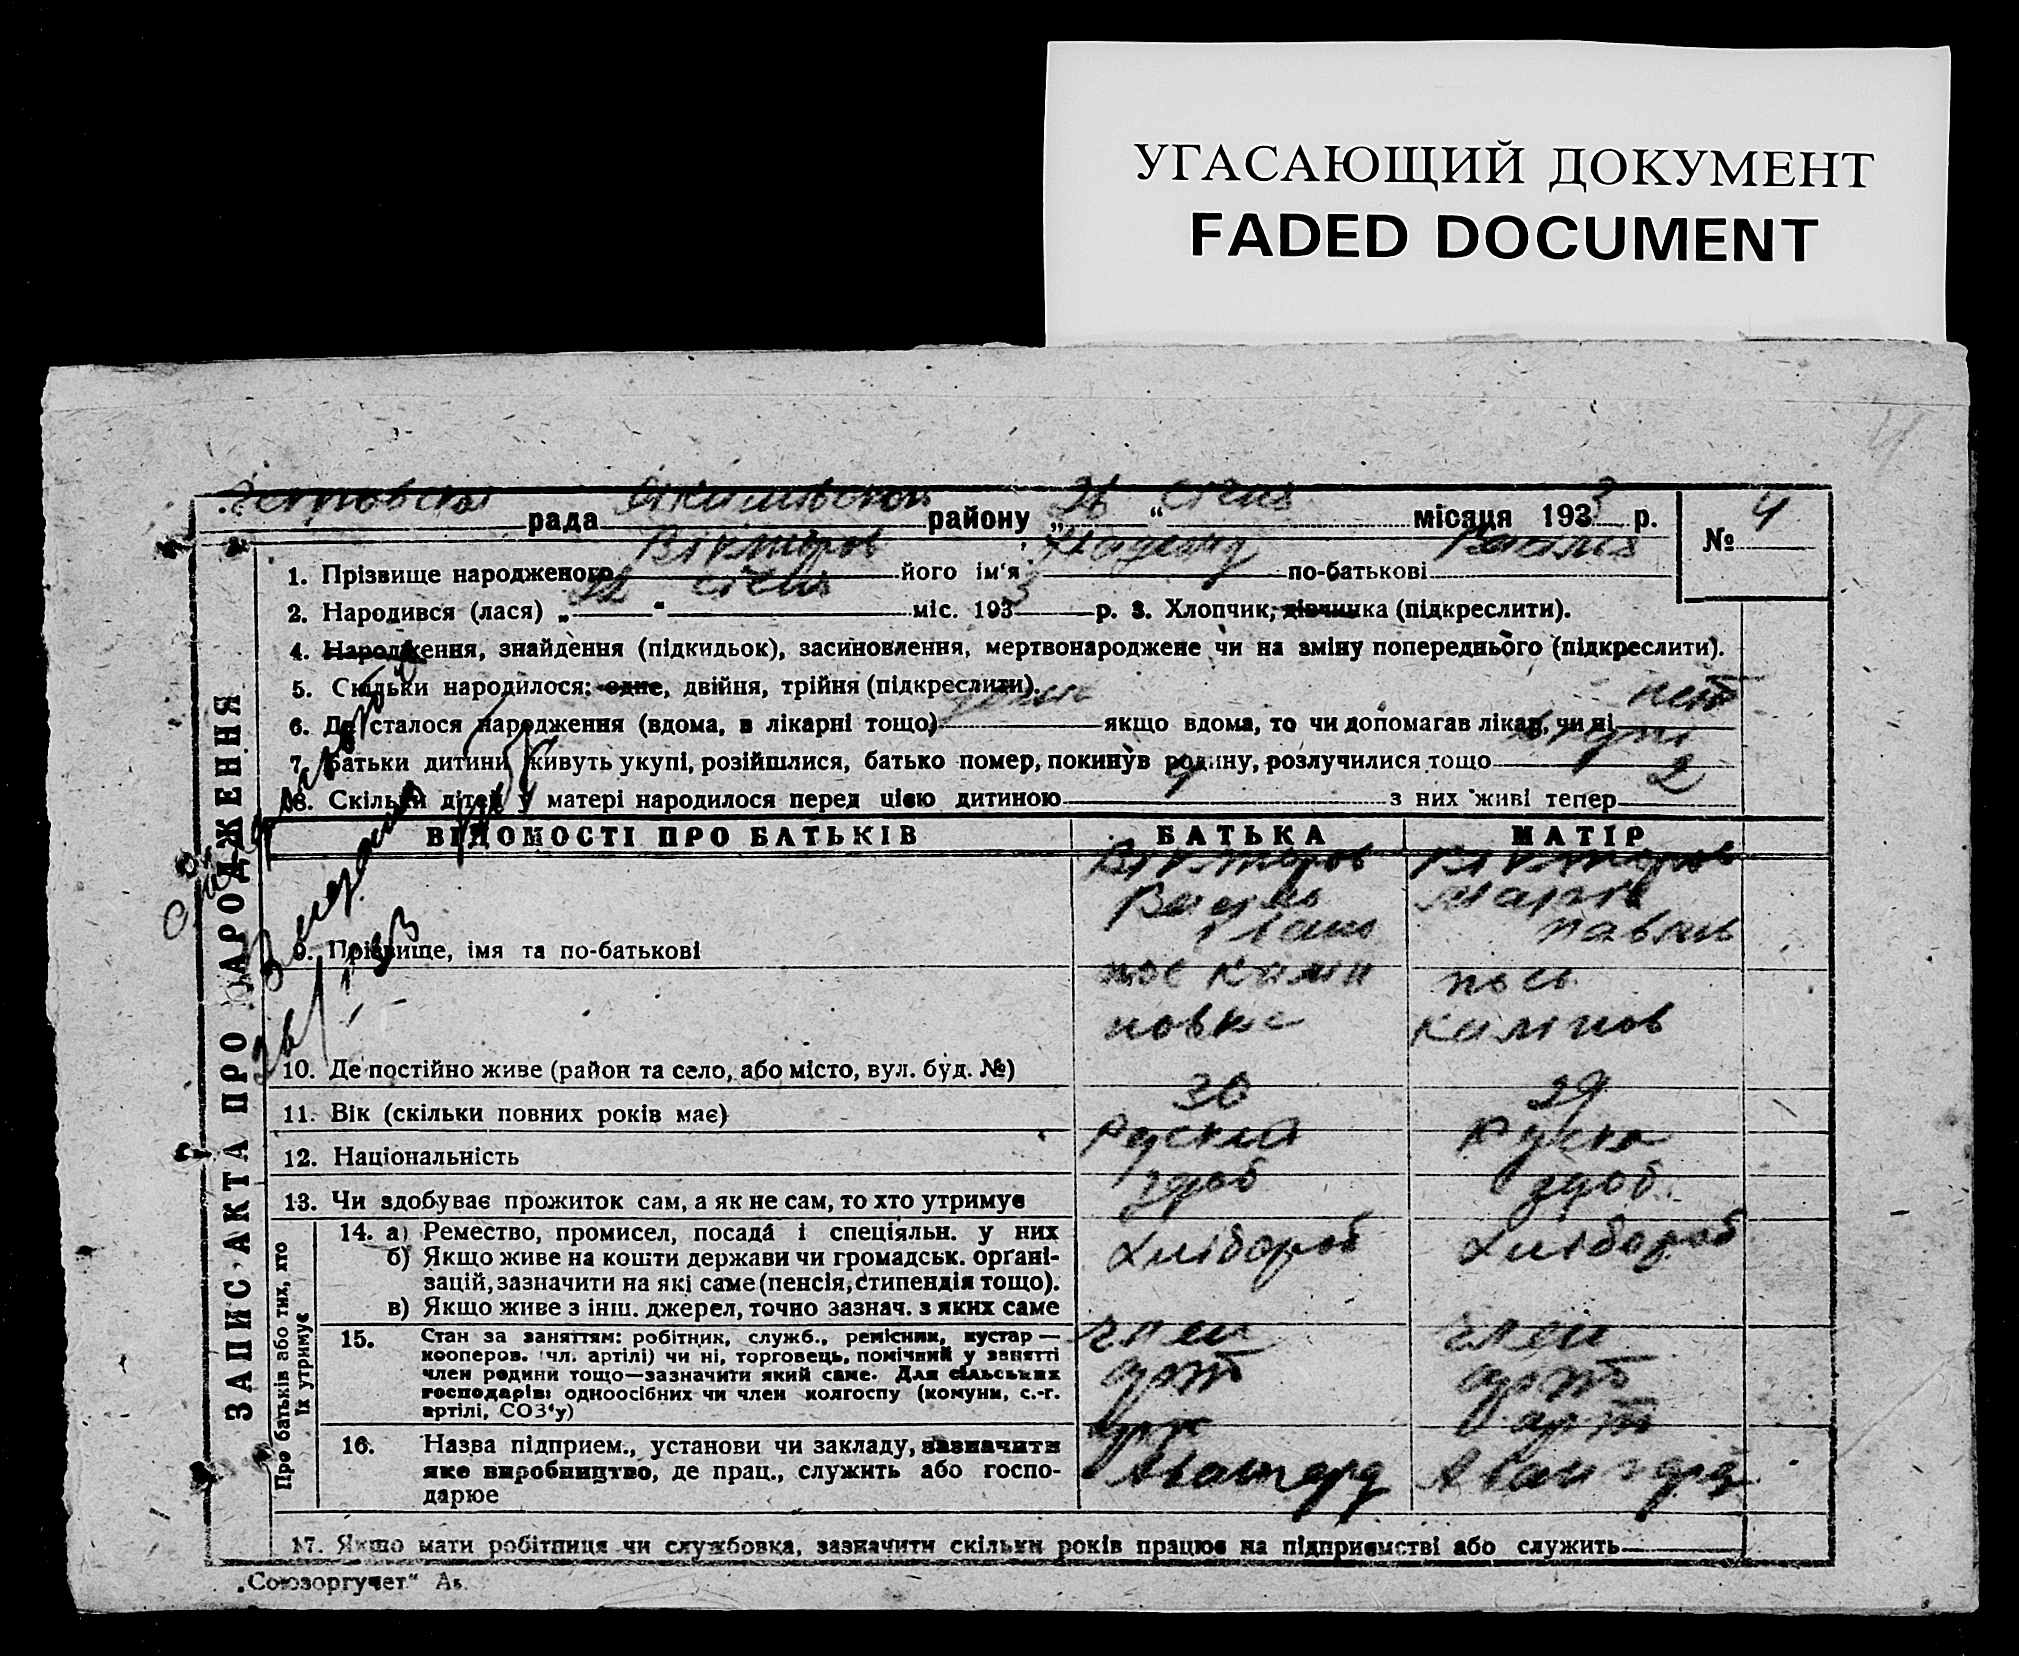 УГАСАЮЩИЙ ДОКУМЕНТ
FADED DOCUMENT
рада району 26 січня місяця 1933 р. № 4
1. Прізвище народженого Вікторов його ім'я по-батькові
2. Народився (лася) „22“ січня міс. 1933 р. 3. Хлопчик, дівчинка (підкреслити).
4. Народження, знайдення (підкидьок), засиновлення, мертвонароджене чи на зміну попереднього (підкреслити).
5. Скільки народилося: одне, двійня, трійня (підкреслити).
6. Де сталося народження (вдома, в лікарні тощо) якщо вдома, то чи допомагав лікар, чи ні нет
7. Батьки дитини живуть укупі, розійшлися, батько помер, покинув родину, розлучилися тощо вкупі
8. Скільки дітей у матері народилося перед цією дитиною 4 з них живі тепер 2
ЗАПИС АКТА ПРО НАРОДЖЕННЯ
ВІДОМОСТІ ПРО БАТЬКІВ БАТЬКА МАТІР
Вікторов Вікторов
Василь Марія
Павлів
9. Прізвище, імя та по-батькові
пос Калин пось
овка Калинов
10. Де постійно живе (район та село, або місто, вул. буд. №)
11. Вік (скільки повних років має) 30 29
12. Національність Руский Руска
13. Чи здобуває прожиток сам, а як не сам, то хто утримує здоб здоб
Про батьків або тих, хто їх утримує
14. а) Ремество, промисел, посада і спеціяльн. у них Хлібороб Хлібороб
б) Якщо живе на кошти держави чи громадськ. орґані-
зацій, зазначити на які саме (пенсія, стипендія тощо).
в) Якщо живе з інш. джерел, точно зазнач. з яких саме
15. Стан за заняттям: робітник, служб., ремісник, кустар — член член
кооперов. (чл. артілі) чи ні, торговець, помічний у занятті
член родини тощо—зазначити який саме. Для сільських арт арт
господарів: одноосібних чи член колгоспу (комуни, с.-г.
артілі, СОЗ'у)
арт арт
16. Назва підприєм., установи чи закладу, зазначити
яке виробництво, де прац., служить або госпо- Авангард Авангард
дарює
17. Якщо мати робітниця чи службовка, зазначити скільки років працює на підприємстві або служить
„Союзоргучет“